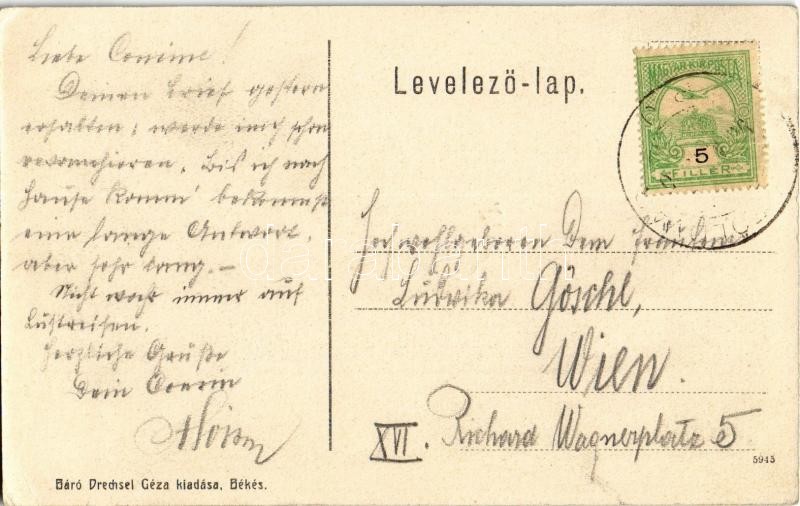 Liebe Cousine!
Deinen Brief gestern
erhalten; werde mich schon
revanchieren. Bis ich nach
Hause komm' bekommst
eine lange Antwort,
aber sehr lang.-
Nicht wahr immer auf
Lustreisen.
Herzliche Grüße
Dein Cousin
Levelező-lap.
MAGYAR KIR. POSTA
5
FILLÉR
Hochwohlgeboren Dem Fräulein
Ludvika Göschl,
Wien.
XVI. Richard Wagnerplatz 5
5945
Báró Drechsel Géza kiadása, Békés.
darabanth